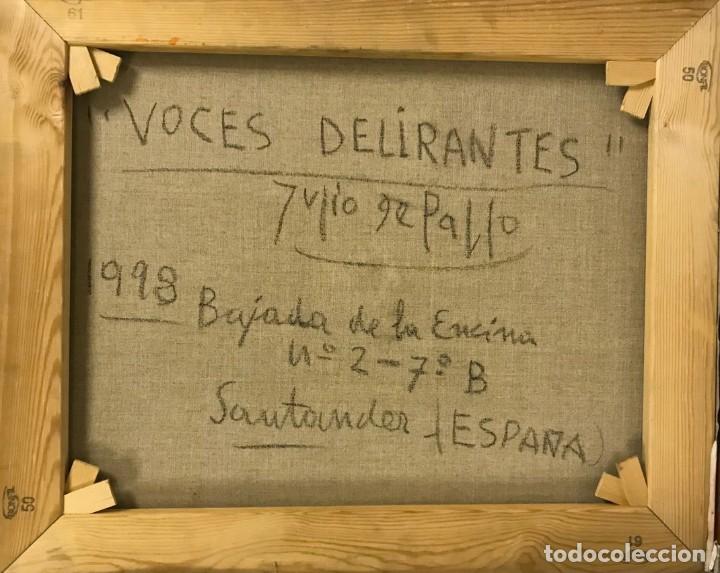 61
50
"VOCES DELIRANTES"
Julio de Pablo
1998 Bajada de la Encina
nº 2-7º B
Santander (ESPAÑA)
50
61
todocoleccion.net